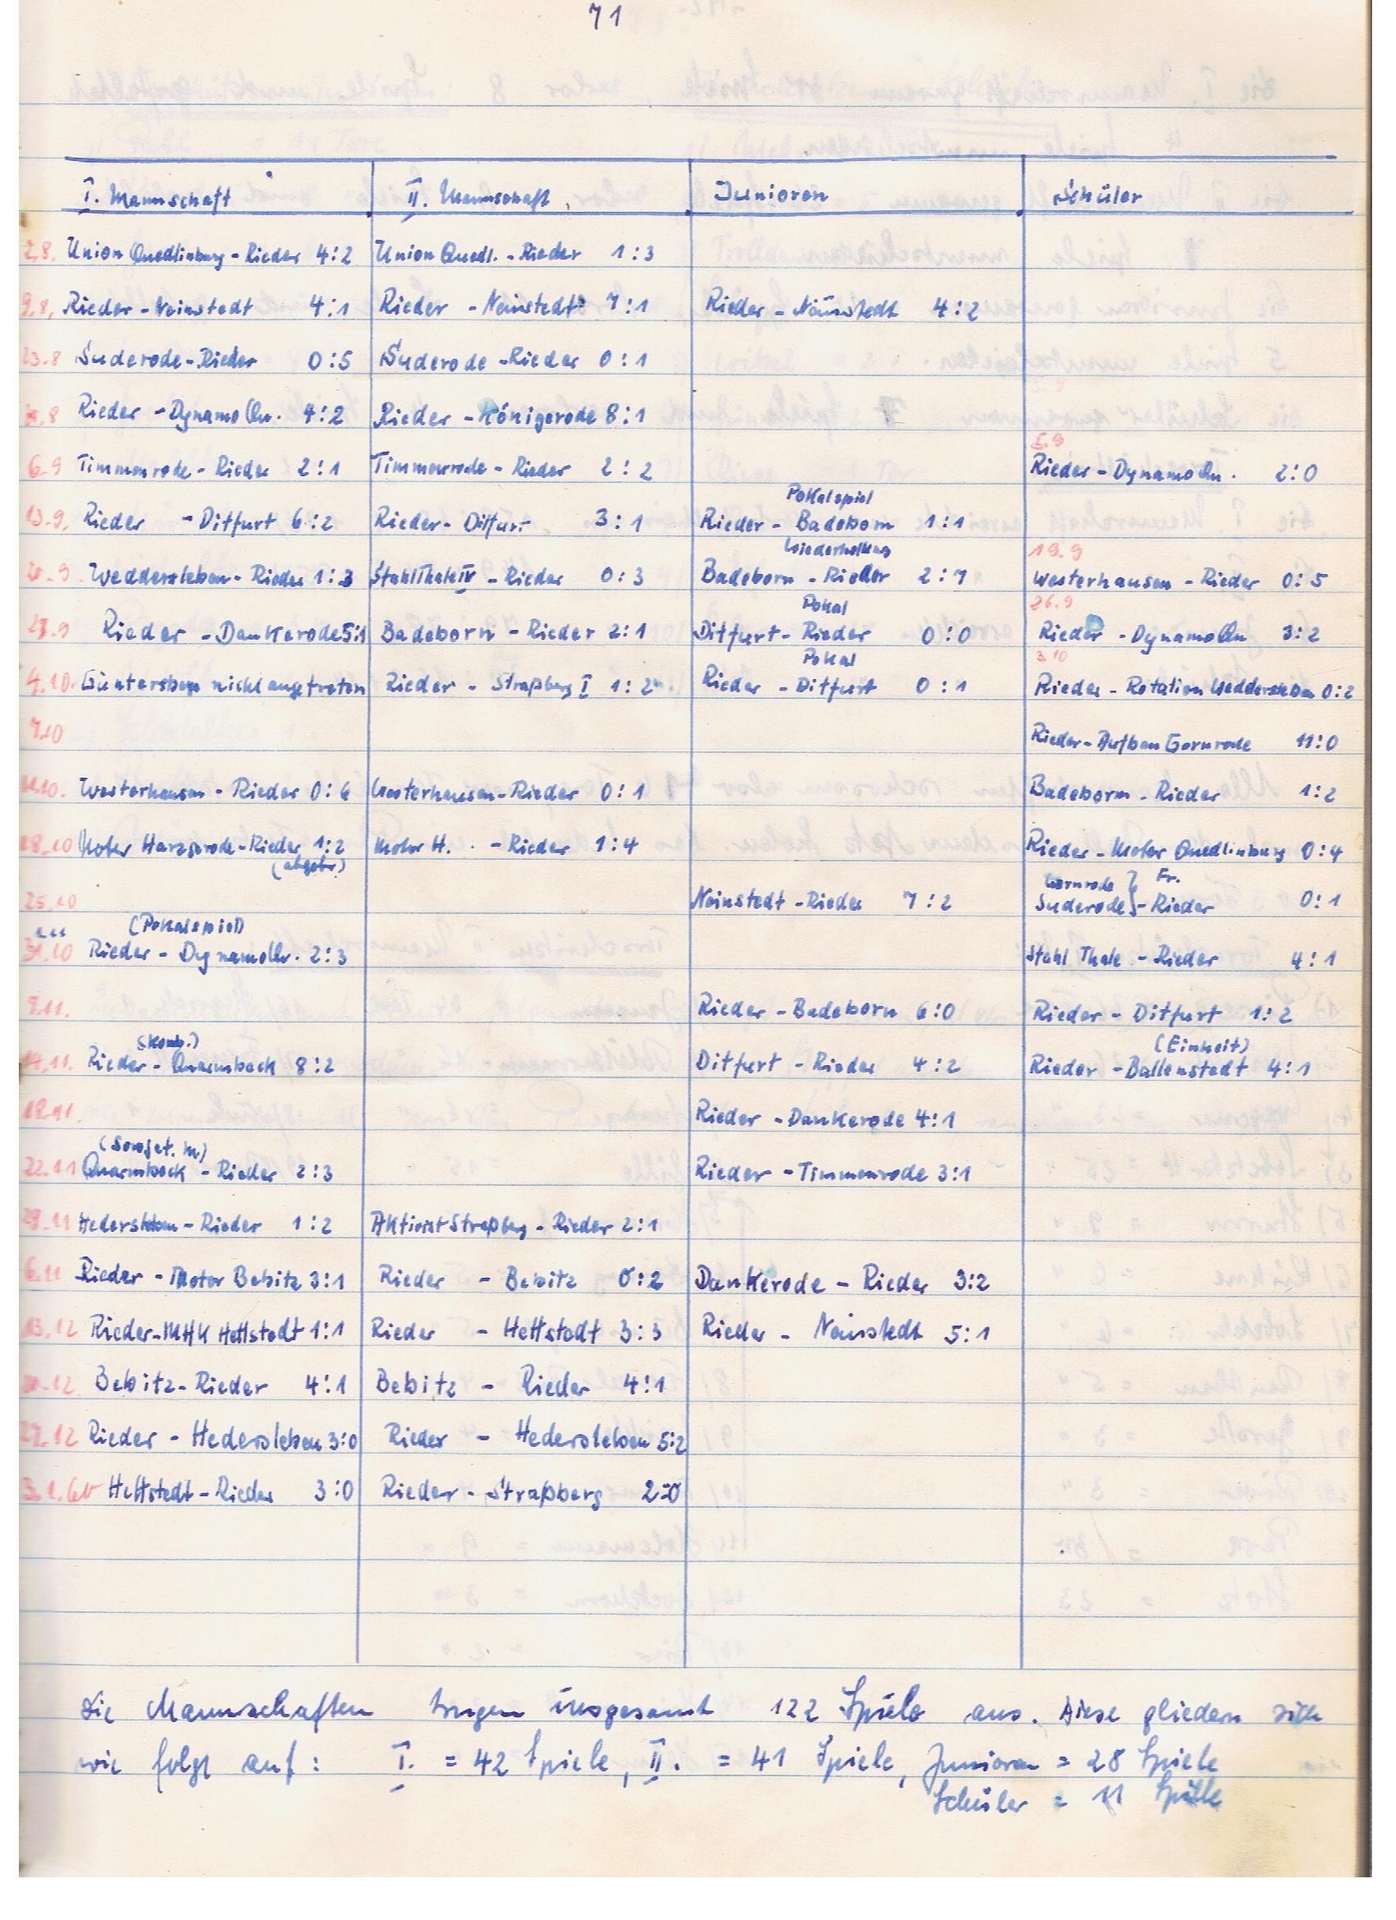 71
I. Mannschaft II. Mannschaft Junioren Schüler
2.8. Union Quedlinburg - Rieder 4:2 Union Quedl. - Rieder 1:3
9.8. Rieder - Neinstedt 4:1 Rieder - Neinstedt 7:1 Rieder - Neinstedt 4:2
23.8 Suderode - Rieder 0:5 Suderode - Rieder 0:1
Rieder - Dynamo Qu. 4:2 Rieder - Königerode 8:1
5.9
6.9 Timmenrode - Rieder 2:1 Timmenrode - Rieder 2:2 Rieder - Dynamo Qu. 2:0
Pokalspiel
13.9. Rieder - Ditfurt 6:2 Rieder - Ditfurt 3:1 Rieder - Badeborn 1:1
19.9
20.9 Weddersleben - Rieder 1:3 Stahl Thale IV - Rieder 0:3 Badeborn - Rieder 2:7 Westerhausen - Rieder 0:5
Pokal 26.9
27.9 Rieder - Dankerode 5:1 Badeborn - Rieder 2:1 Ditfurt - Rieder 0:0 Rieder - Dynamo Qu 3:2
Pokal 3.10
4.10. nicht angetreten Rieder - Straßberg I 1:2 Rieder - Ditfurt 0:1 Rieder - Rotation 0:2
7.10 Rieder - Aufbau Gernrode 11:0
11.10. Westerhausen - Rieder 0:6 Westerhausen - Rieder 0:1 Badeborn - Rieder 1:2
18.10 Motor Harzgerode - Rieder 1:2 Motor H. - Rieder 1:4 Rieder - Motor Quedlinburg 0:4
(abgebr)
Gernrode Fr.
25.10 Neinstedt - Rieder 7:2 Suderode } - Rieder 0:1
(Pokalspiel)
31.10 Rieder - Dynamo Qu. 2:3 Stahl Thale - Rieder 4:1
Rieder - Badeborn 6:0 Rieder - Ditfurt 1:2
(Komb.) (Einheit)
14.11. Rieder - Quarmbeck 8:2 Ditfurt - Rieder 4:2 Rieder - Ballenstedt 4:1
Rieder - Dankerode 4:1
(Sowjet. M)
22.11 Quarmbeck - Rieder 2:3 Rieder - Timmenrode 3:1
29.11 Hedersleben - Rieder 1:2 Aktivist Straßberg - Rieder 2:1
6.11 Rieder - Motor Bebitz 3:1 Rieder - Bebitz 0:2 Dankerode - Rieder 3:2
13.12 Rieder - MHK Hettstedt 1:1 Rieder - Hettstedt 3:3 Rieder - Neinstedt 5:1
20.12 Bebitz - Rieder 4:1 Bebitz - Rieder 4:1
27.12 Rieder - Hedersleben 3:0 Rieder - Hedersleben 5:2
3.1.60 Hettstedt - Rieder 3:0 Rieder - Straßberg 2:0
Die Mannschaften trugen insgesamt 122 Spiele aus. Diese gliedern sich
wie folgt auf: I. = 42 Spiele, II. = 41 Spiele, Junioren = 28 Spiele
Schüler = 11 Spiele